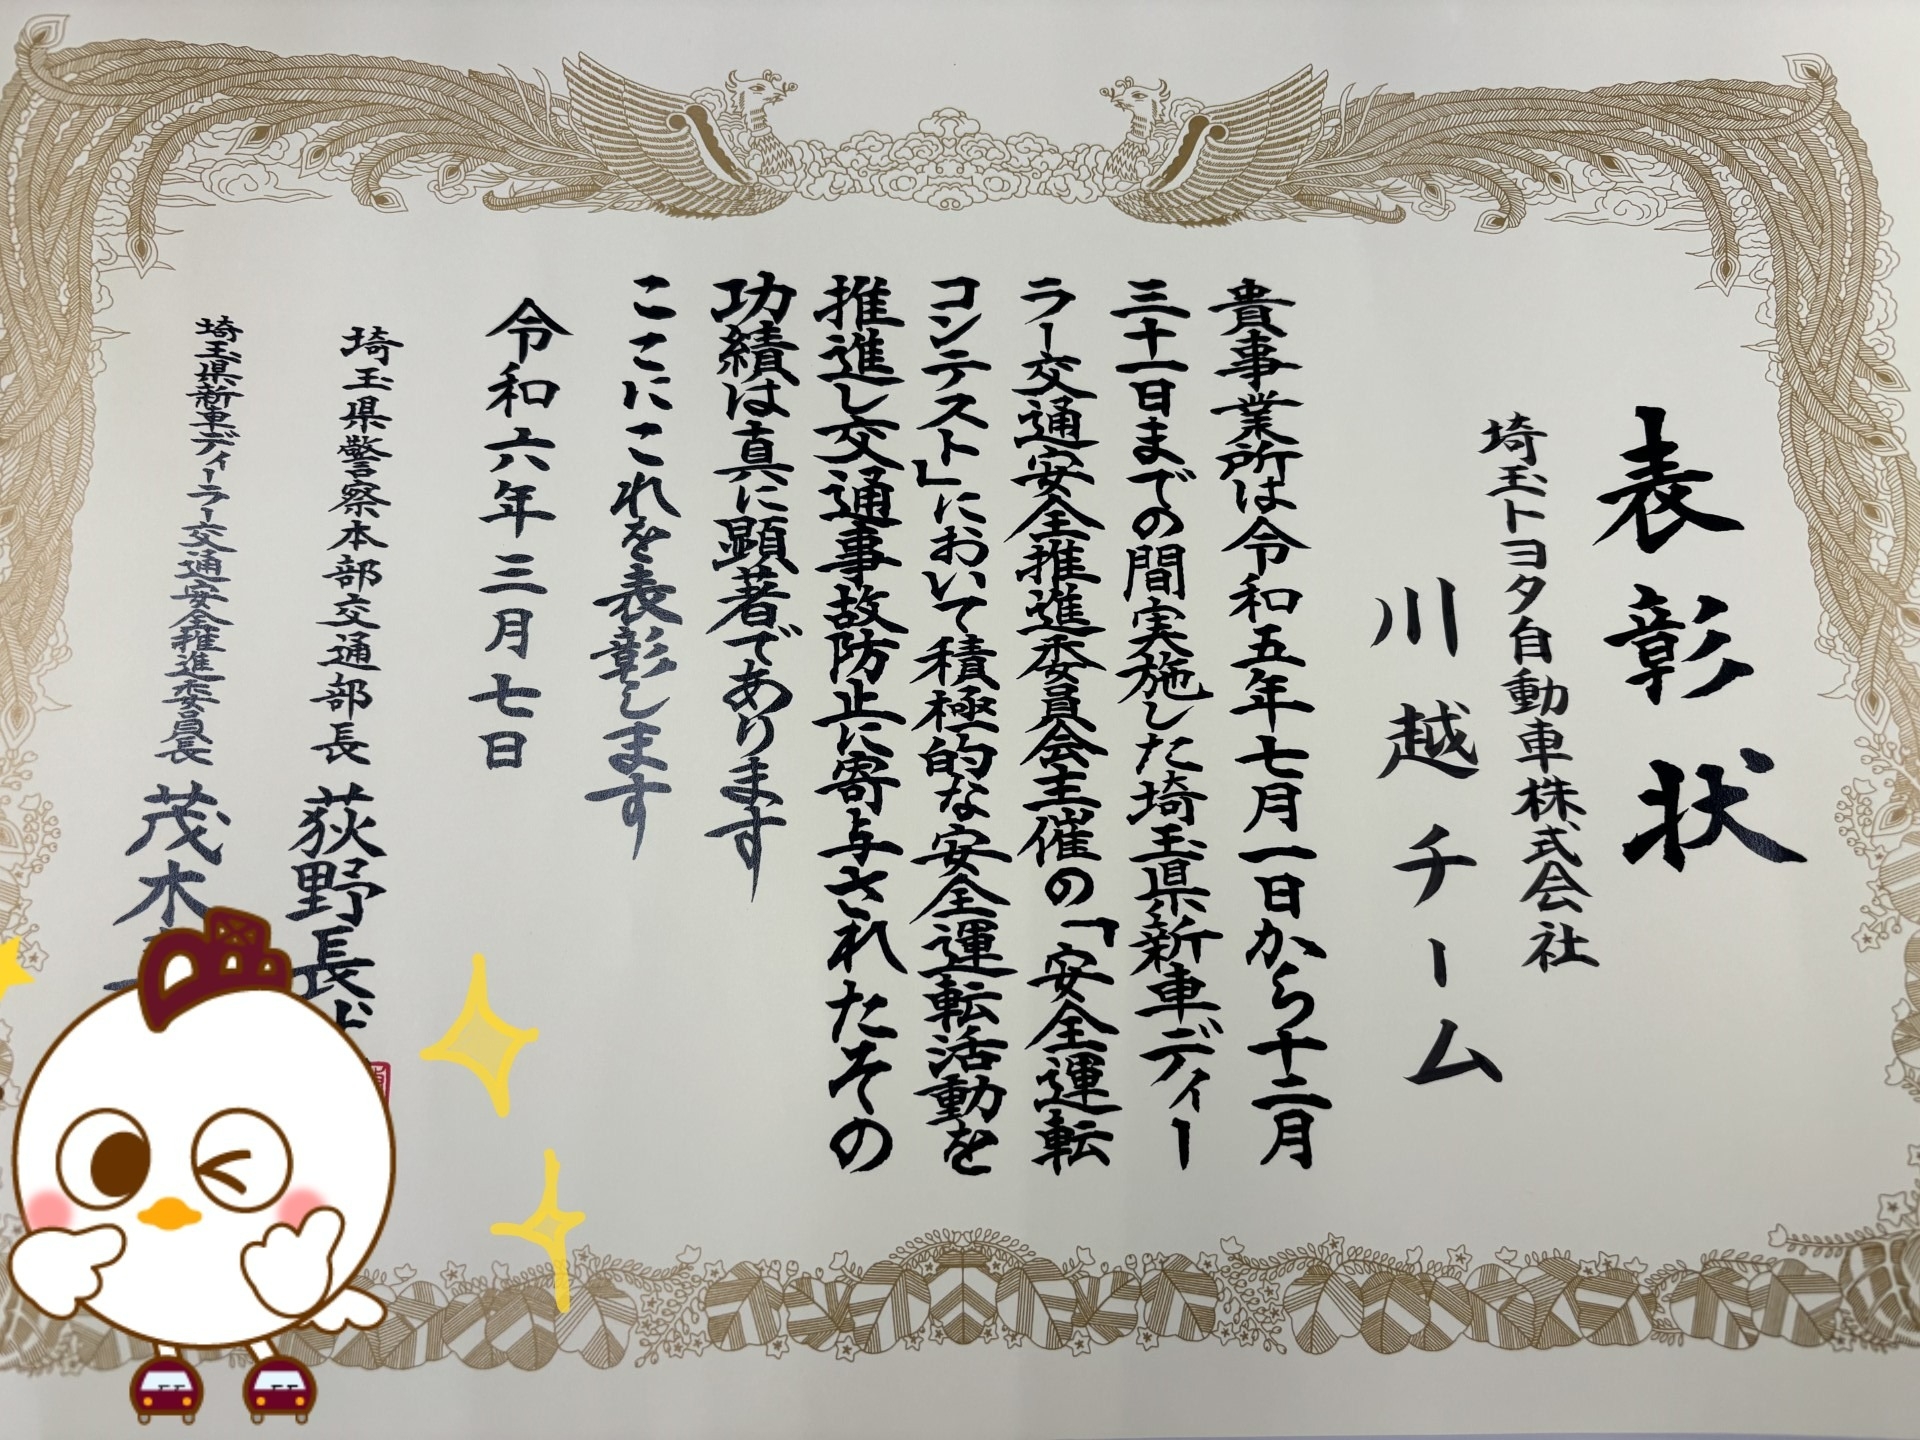 表彰状
埼玉トヨタ自動車株式会社
川越チーム
貴事業所は令和五年七月一日から十二月
三十一日までの間実施した埼玉県新車ディー
ラー交通安全推進委員会主催の「安全運転
コンテスト」において積極的な安全運転活動を
推進し交通事故防止に寄与されたその
功績は真に顕著であります
ここにこれを表彰します
令和六年三月七日
埼玉県警察本部交通部長 荻野長
埼玉県新車ディーラー交通安全推進委員長 茂木